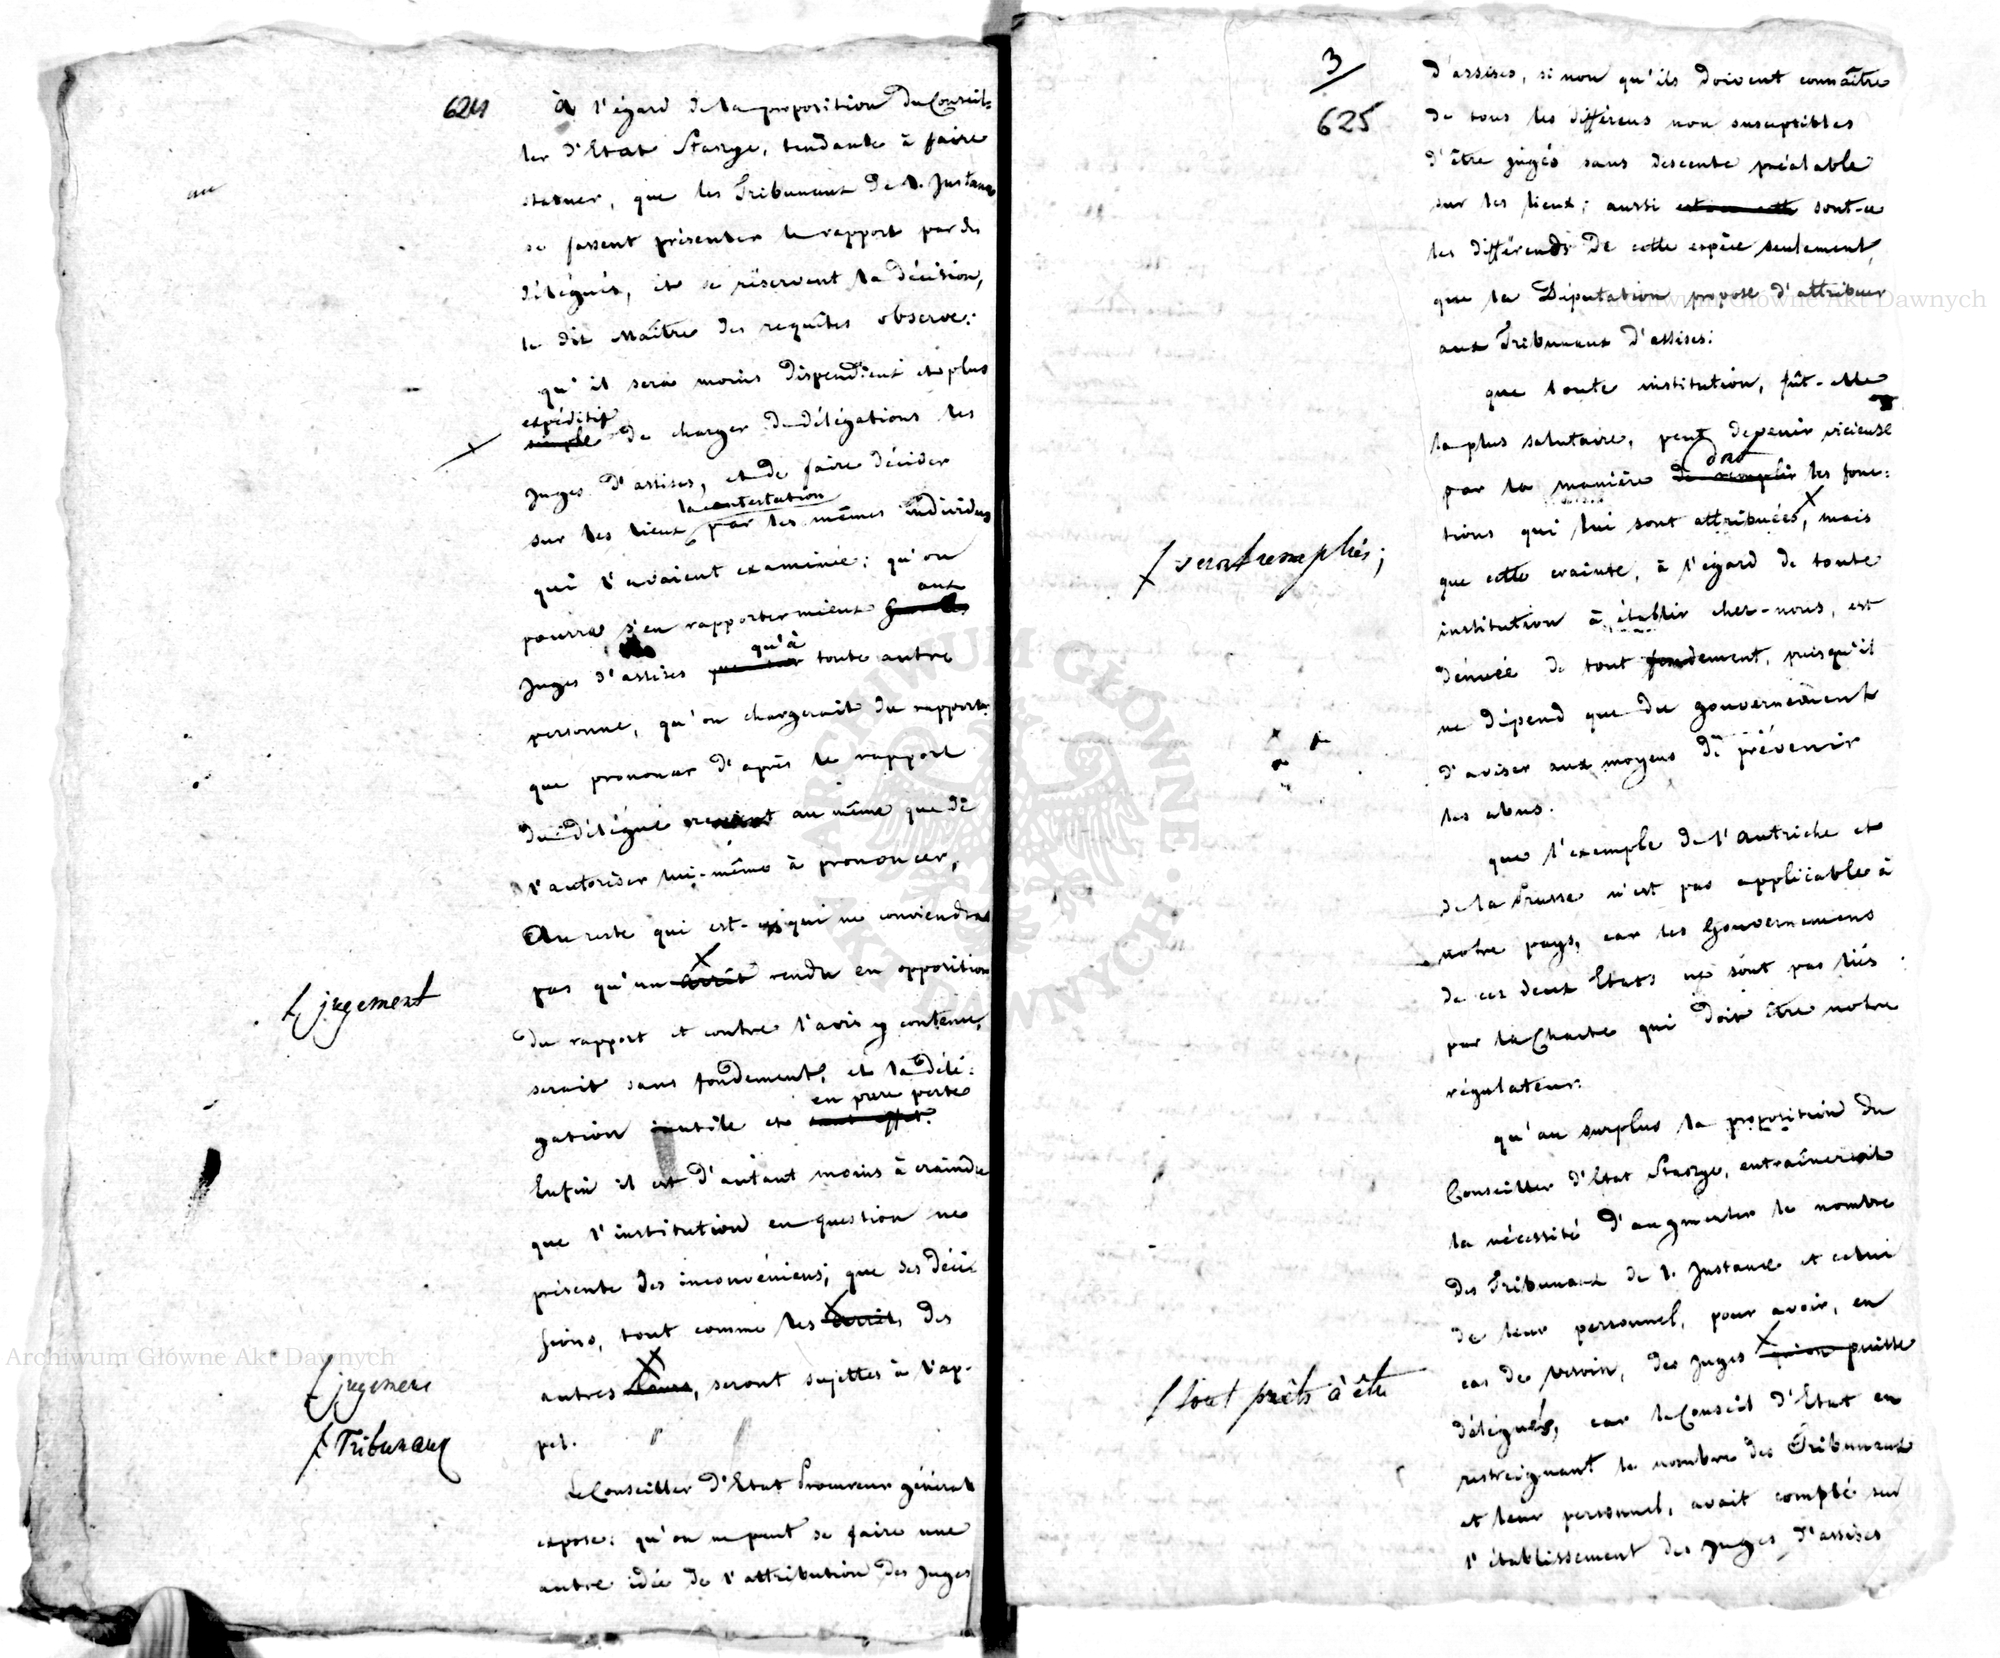 624
à l'égard de la proposition du Conseil-
ler d'Etat Staszyc, tendante à faire
statuer, que les Tribunaux de 1. Instance
se fassent présenter le rapport par des
délégués, et se réservent la décision,
le dit Maître des requêtes observe:
qu'il sera moins dispendieux et plus
expéditif
simple de charger de délégations les
Juges d'assises, et de faire décider
la contestation
sur les lieux par les mêmes individus
qui l'avaient examinée; qu'on
aux
pourra s'en rapporter mieux
qu'à
Juges d'assises toute autre
personne, qu'on chargerait du rapport;
que prononcer d'après le rapport
du délégué revient au même que de
l'autoriser lui-même à prononcer,
Au reste qui est-ce qui ne conviendra
pas qu'un arrêt rendu en opposition
jugement
du rapport et contre l'avis y contenu,
serait sans fondement, et la délé-
en pure perte
gation inutile et sans effet.
Enfin il est d'autant moins à craindre
que l'institution en question ne
présente des inconvéniens; que ses déci-
sions, tout comme les arrêts des
jugemens
autres, seront sujettes à l'ap-
Tribunaux
pel.
Le Conseiller d'Etat Procureur général
expose: qu'on ne peut se faire une
autre idée de l'attribution des Juges
3
625
d'assises, sinon qu'ils doivent connaître
de tous les différens non susceptibles
d'être jugés sans descente préalable
sur les lieux; aussi sont-ce
les différends de cette espèce seulement,
que la Députation propose d'attribuer
aux Tribunaux d'assises:
que toute institution, fût-elle
la plus salutaire, peut devenir vicieuse
dont
par la manière de remplir les fonc-
tions qui lui sont attribuées, mais
seront remplies;
que cette crainte, à l'égard de toute
institution à établir chez-nous, est
dénuée de tout fondement, puisqu'il
ne dépend que du gouvernement
d'aviser aux moyens de prévenir
les abus.
que l'exemple de l'Autriche et
de la Prusse n'est pas applicable à
notre pays, car les Gouvernemens
de ces deux Etats ne sont pas liés
par la Charte qui doit être notre
régulateur.
qu'au surplus la proposition du
Conseiller d'Etat Staszyc, entraînerait
la nécessité d'augmenter le nombre
des Tribunaux de 1. Instance et celui
de leur personnel, pour avoir, en
cas de besoin, des Juges qu'on puisse
tout prêts à être
délégués, car le Conseil d'Etat en
restreignant le nombre des Tribunaux
et leur personnel, avait compté sur
l'établissement des Juges d'assises
Archiwum Główne Akt Dawnych
Archiwum Główne Akt Dawnych
ARCHIWUM GŁÓWNE AKT DAWNYCH